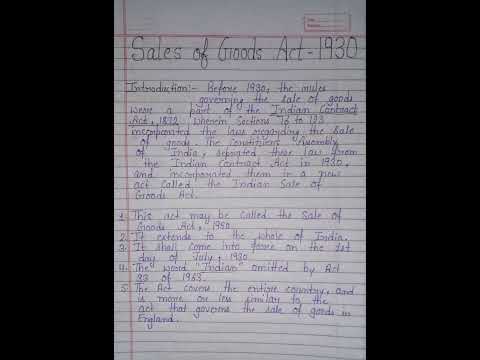 Sales of Goods Act - 1930
Introduction:- Before 1930, the rules
governing the sale of goods
were a part of the Indian Contract
Act, 1872 wherein Sections 76 to 123
incorporated the laws regarding the sale
of goods. The Constituent Assembly
of India, seprated these law from
the Indian Contract Act in 1930,
and incorporated them in a new
act called the Indian Sale of
Goods Act.
1. This act may be called the Sale of
Goods Act, 1930.
2. It extends to the whole of India.
3. It shall come into force on the 1st
day of July, 1930
4. The word "Indian" omitted by Act
33 of 1963.
5. The Act covers the entire country, and
is more or less similar to the
act that governs the sale of goods in
England.